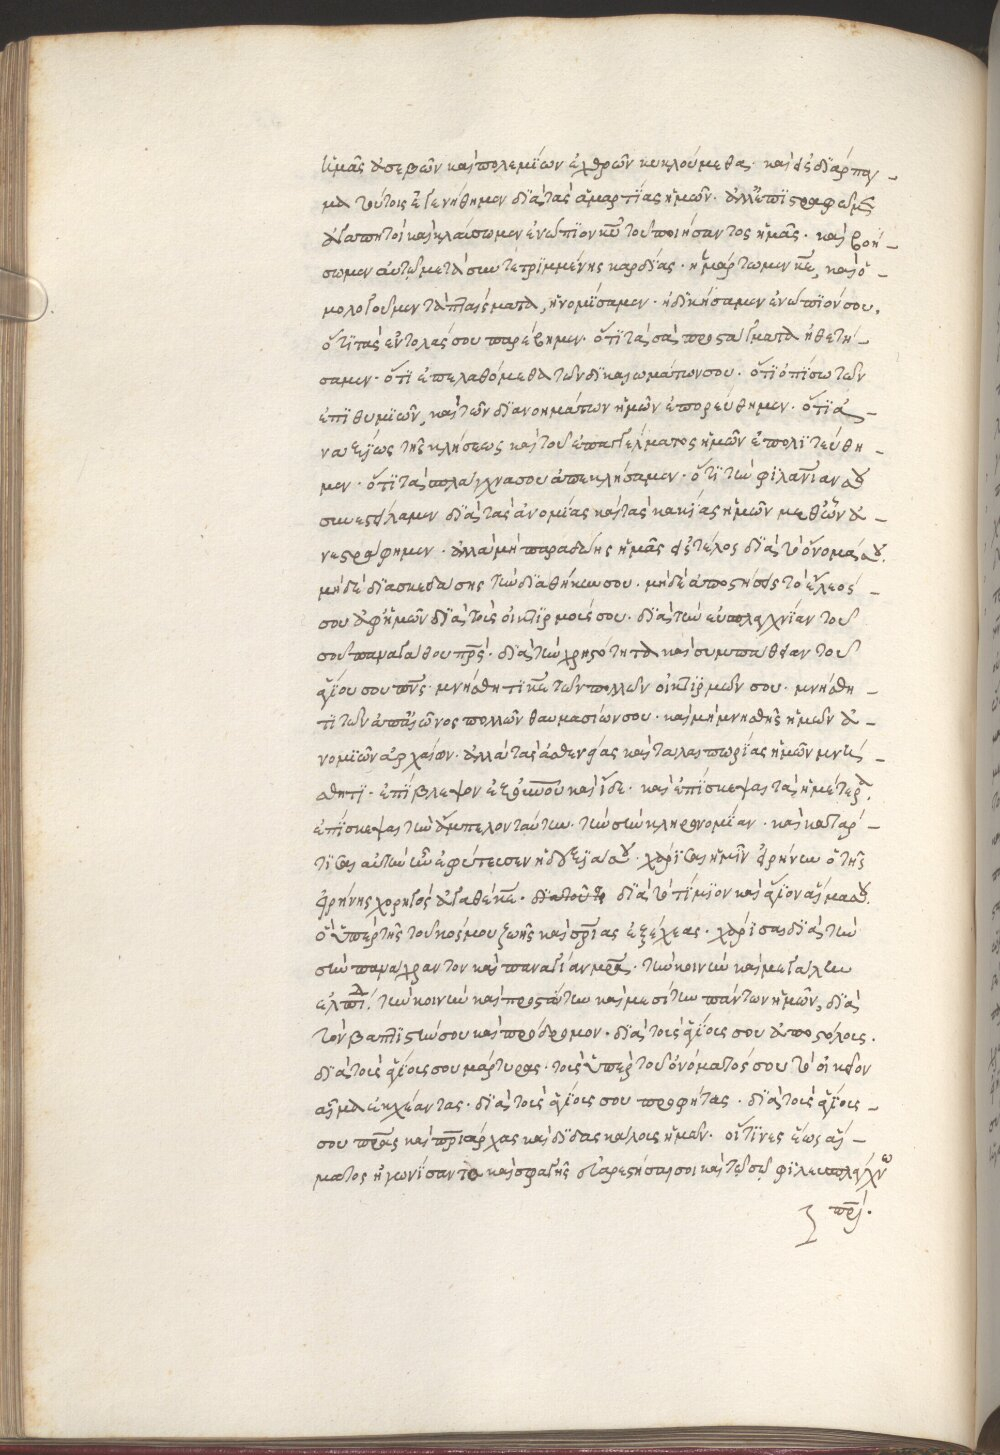 ἡμᾶς ἀσεβῶν καὶ πολεμίων ἐχθρῶν κυκλούμεθα· καὶ εἰς διαρπαγ-
μα τούτοις ἐγενήθημεν διὰ τὰς ἁμαρτίας ἡμῶν· ἀλλ' ἐπιστραφῶμεν
ἀγαπητοὶ καὶ κλαύσωμεν ἐνώπιον κυ τοῦ ποιήσαντος ἡμᾶς· καὶ βοή-
σωμεν αὐτῷ μετὰ συντετριμμένης καρδίας· ἡμάρτωμεν κε, καὶ ὁ-
μολογοῦμεν τὰ πταίσματα, ἠνομίσαμεν· ἠδικήσαμεν ἐνώπιόν σου,
ὅτι τὰς ἐντολάς σου παρέβημεν· ὅτι τὰ σὰ προστάγματα ἠθετή-
σαμεν· ὅτι ἐπελαθόμεθα τῶν δικαιωμάτων σου· ὅτι ὀπίσω τῶν
ἐπιθυμιῶν, καὶ τῶν διανοημάτων ἡμῶν ἐπορεύθημεν· ὅτι ἀ-
ναξίως τῆς κλήσεως καὶ τοῦ ἐπαγγέλματος ἡμῶν ἐπολιτεύθη-
μεν· ὅτι τὰ σπλάγχνα σου ἀπεκλήσαμεν· ὅτι τὴν φιλανίαν σου
συνεστείλαμεν διὰ τὰς ἀνομίας καὶ τὰς κακίας ἡμῶν μεθ' ὧν ἀ-
νεστράφημεν· ἀλλὰ μὴ παραδώης ἡμᾶς εἰς τέλος διὰ τὸ ὄνομά σου.
μηδὲ διασκεδάσης τὴν διαθήκην σου· μηδὲ ἀποστήσεις τὸ ἔλεός
σου ἀφ' ἡμῶν διὰ τοὺς οἰκτιρμούς σου· διὰ τὴν εὐσπλαγχνίαν τοῦ
σοῦ παναγάθου πρς· διὰ τὴν χρηστότητα καὶ συμπάθειαν τοῦ
ἁγίου σου πνς· μνήσθητι κε τῶν πολλῶν οἰκτιρμῶν σου· μνήσθη-
τι τῶν ἀπ' αἰῶνος πολλῶν θαυμασίων σου· καὶ μὴ μνησθῆς ἡμῶν ἀ-
νομιῶν ἀρχαίων· ἀλλὰ τὰς ἀσθενείας καὶ ταλαιπωρίας ἡμῶν μνή-
σθητι· ἐπίβλεψον ἐξ οὐνοῦ καὶ ἴδε· καὶ ἐπίσκεψαι τὰ ἡμέτερα.
ἐπίσκεψαι τὴν ἄμπελον ταύτην· τὴν σὴν κληρονομίαν· καὶ κατάρ-
τισαι αὐτὴν ἣν ἐφύτευσεν ἡ δεξιά σου· χάρισαι ἡμῖν εἰρήνην ὁ τῆς
εἰρήνης χορηγὸς ἀγαθὲ κε· διὰ τὸ τίμιον καὶ ἅγιον αἷμα σου.
ὃ ὑπὲρ τῆς τοῦ κόσμου ζωῆς καὶ σρίας ἐξέχεας· χάρισαι διὰ τὴν
σὴν παναχραντον καὶ παναγίαν μρα· τὴν κοινὴν καὶ μεγάλην
ἐλπίδα. τὴν κοινὴν καὶ προστάτιν καὶ μεσίτιν πάντων ἡμῶν, διὰ
τὸν βαπτιστήν σου καὶ πρόδρομον· διὰ τοὺς ἁγίους σου ἀποστόλους.
διὰ τοὺς ἁγίους σου μάρτυρας· τοὺς ὑπὲρ τοῦ ὀνόματός σου τὸ οἰκεῖον
αἷμα ἐκχέαντας· διὰ τοὺς ἁγίους σου προφήτας· διὰ τοὺς ἁγίους
σου πρας καὶ πριάρχας καὶ διδασκάλους ἡμῶν· οἵτινες ἕως αἵ-
ματος ἠγωνίσαντο καὶ σφαγῆς εὐαρεστῆσαί σοι καὶ τῷ σῷ φιλευσπλάγχνω
πρί·